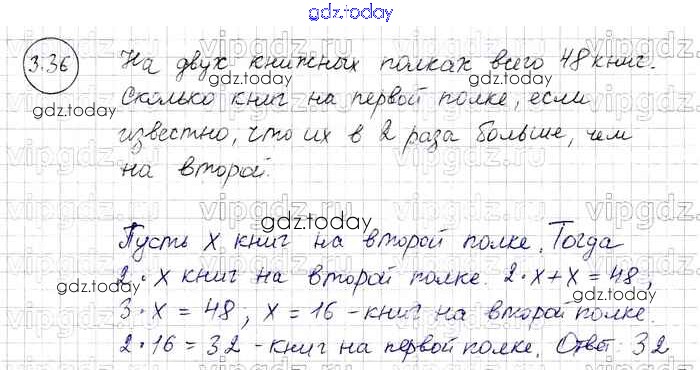 gdz.today
3.36 На двух книжных полках всего 48 книг.
gdz.today gdz.today
Сколько книг на первой полке, если
известно, что их в 2 раза больше, чем
на второй.
gdz.today
Пусть x книг на второй полке. Тогда
2·x книг на второй полке. 2·x+x=48;
gdz.today gdz.today
3·x=48; x=16 - книг на второй полке.
2·16=32 - книг на первой полке. Ответ: 32
gdz.today
vipgdz.ru